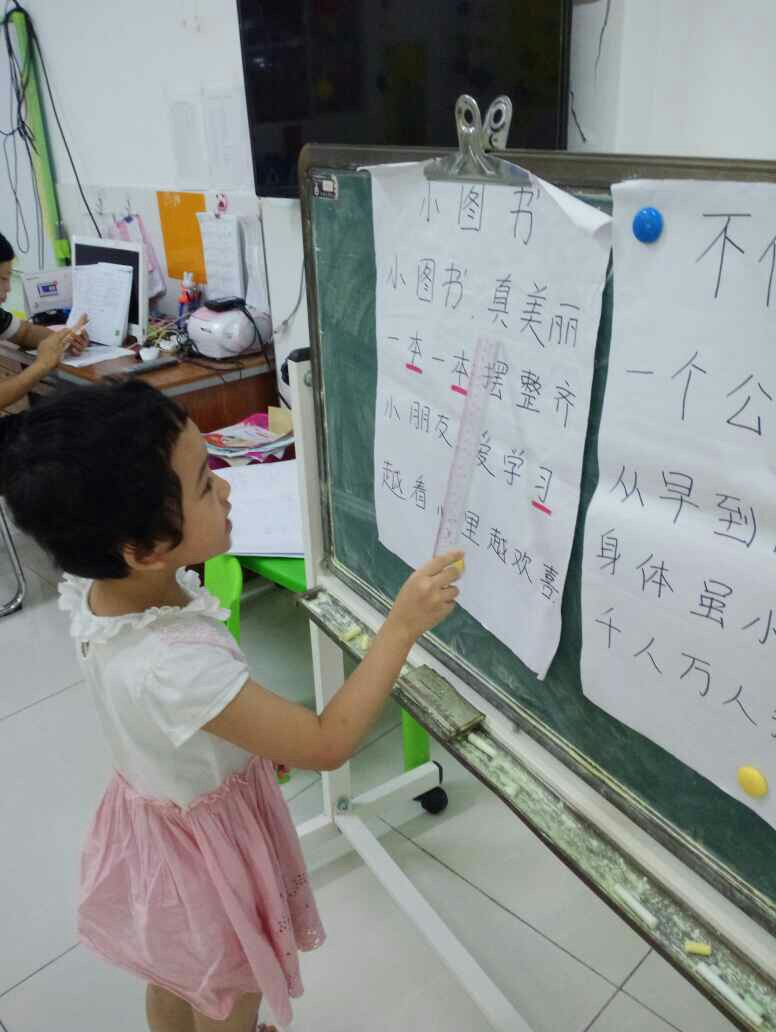 小图书
小图书,真美丽
一本一本摆整齐
小朋友 爱学习
越看心里越欢喜.
不
一个公
从早到
身体虽小
千人万人